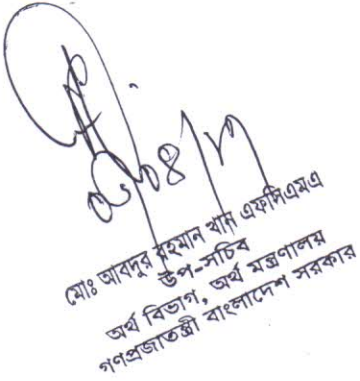 মোঃ আবদুর রহমান খান এফসিএমএ
উপ-সচিব
অর্থ বিভাগ, অর্থ মন্ত্রণালয়
গণপ্রজাতন্ত্রী বাংলাদেশ সরকার